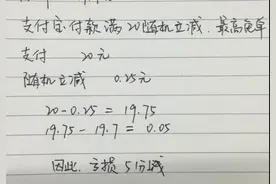 支付宝付款满20随机立减.最高免单
支付 20元
随机立减 0.25元
20-0.25=19.75
19.75-19.7=0.05
因此,亏损5分钱